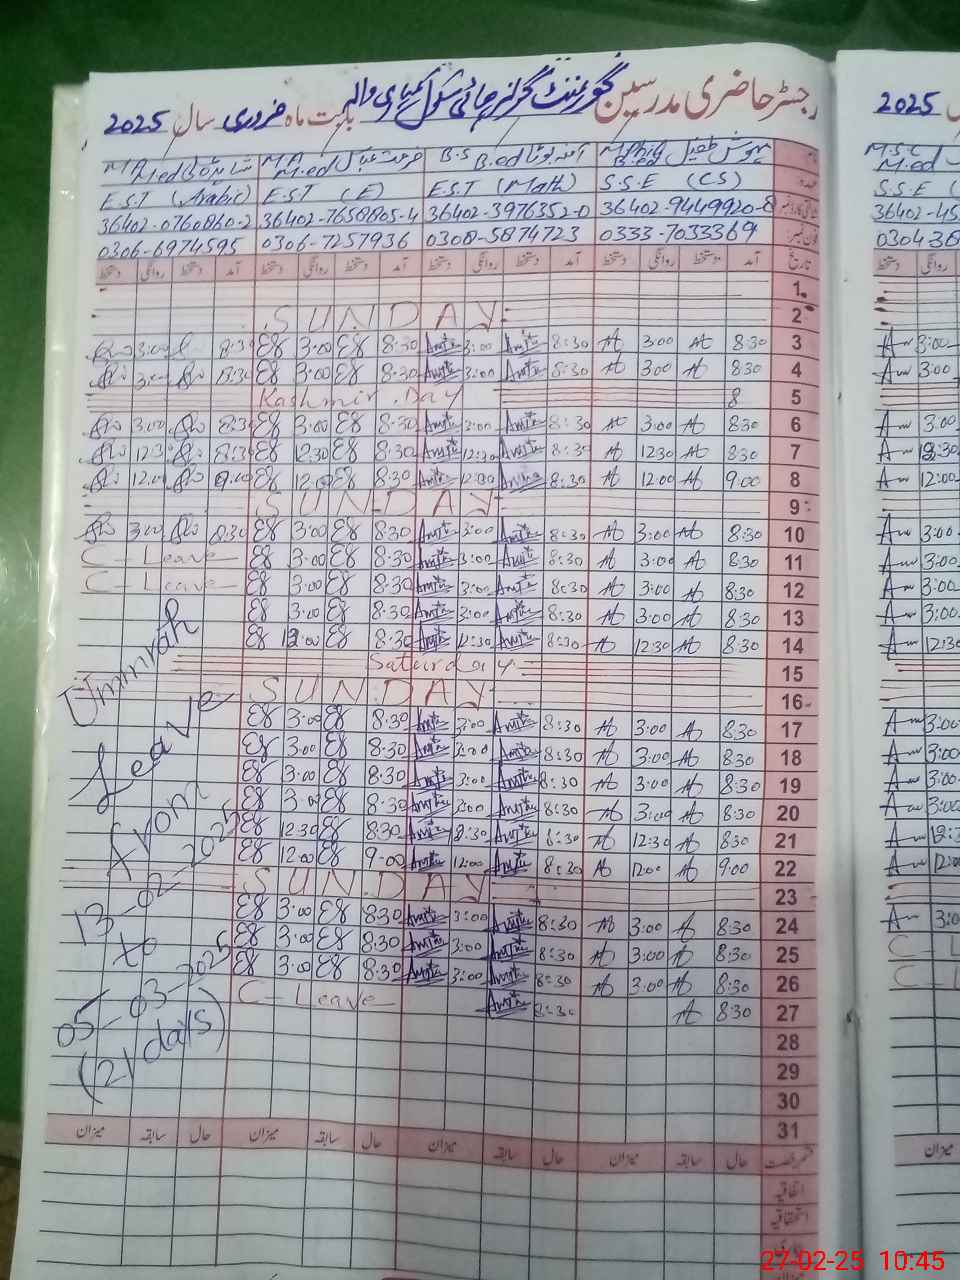 رجسٹر حاضری مدرسین گورنمنٹ گرلز ہائی سکول کمہاری والہ بابت ماہ فروری سال 2025
M.A M.ed M.A M.ed B.S B.ed آمنہ M.Phil
E.S.T (Arabic) E.S.T (E) E.S.T (Math) S.S.E (CS)
36402-0760860-2 36402-7658805-4 36402-3976352-0 36402-9449920-8
0306-6974595 0306-7257936 0308-5874723 0333-7033369
تاریخ آمد دستخط روانگی دستخط آمد دستخط روانگی دستخط آمد دستخط روانگی دستخط آمد دستخط روانگی دستخط
1
SUNDAY 2
3:00 8:30 3:00 8:30 3:00 8:30 3:00 8:30 3
3:00 8:30 3:00 8:30 3:00 8:30 3:00 8:30 4
Kashmir Day 8 5
3:00 8:30 3:00 8:30 3:00 8:30 3:00 8:30 6
12:30 8:30 12:30 8:30 12:30 8:30 12:30 8:30 7
12:00 9:00 12:00 8:30 12:00 8:30 12:00 9:00 8
SUNDAY 9
3:00 8:30 3:00 8:30 3:00 8:30 3:00 8:30 10
C-Leave 3:00 8:30 3:00 8:30 3:00 8:30 11
C-Leave 3:00 8:30 3:00 8:30 3:00 8:30 12
3:00 8:30 3:00 8:30 3:00 8:30 13
12:00 8:30 12:30 8:30 12:30 8:30 14
Saturday 15
SUNDAY 16
3:00 8:30 3:00 8:30 3:00 8:30 17
3:00 8:30 3:00 8:30 3:00 8:30 18
3:00 8:30 3:00 8:30 3:00 8:30 19
3:00 8:30 3:00 8:30 3:00 8:30 20
12:30 8:30 12:30 8:30 12:30 8:30 21
12:00 9:00 12:00 8:30 12:00 9:00 22
SUNDAY 23
3:00 8:30 3:00 8:30 3:00 8:30 24
3:00 8:30 3:00 8:30 3:00 8:30 25
3:00 8:30 3:00 8:30 3:00 8:30 26
C-Leave 8:30 8:30 27
28
29
30
31
Ummrah
Leave
from
13-02-2025
to
05-03-2025
(21 days)
حال سابقہ میزان حال سابقہ میزان حال سابقہ میزان حال سابقہ میزان
اتفاقیہ
استحقاقیہ
میزان
2025
M.S.C
M.ed
S.S.E
36402-45
0304-36
دستخط روانگی
3:00
3:00
3:00
12:30
12:00
3:00
3:00
3:00
3:00
12:30
3:00
3:00
3:00
3:00
12:3
12:00
3:0
C L
C L
میزان
27-02-25 10:45